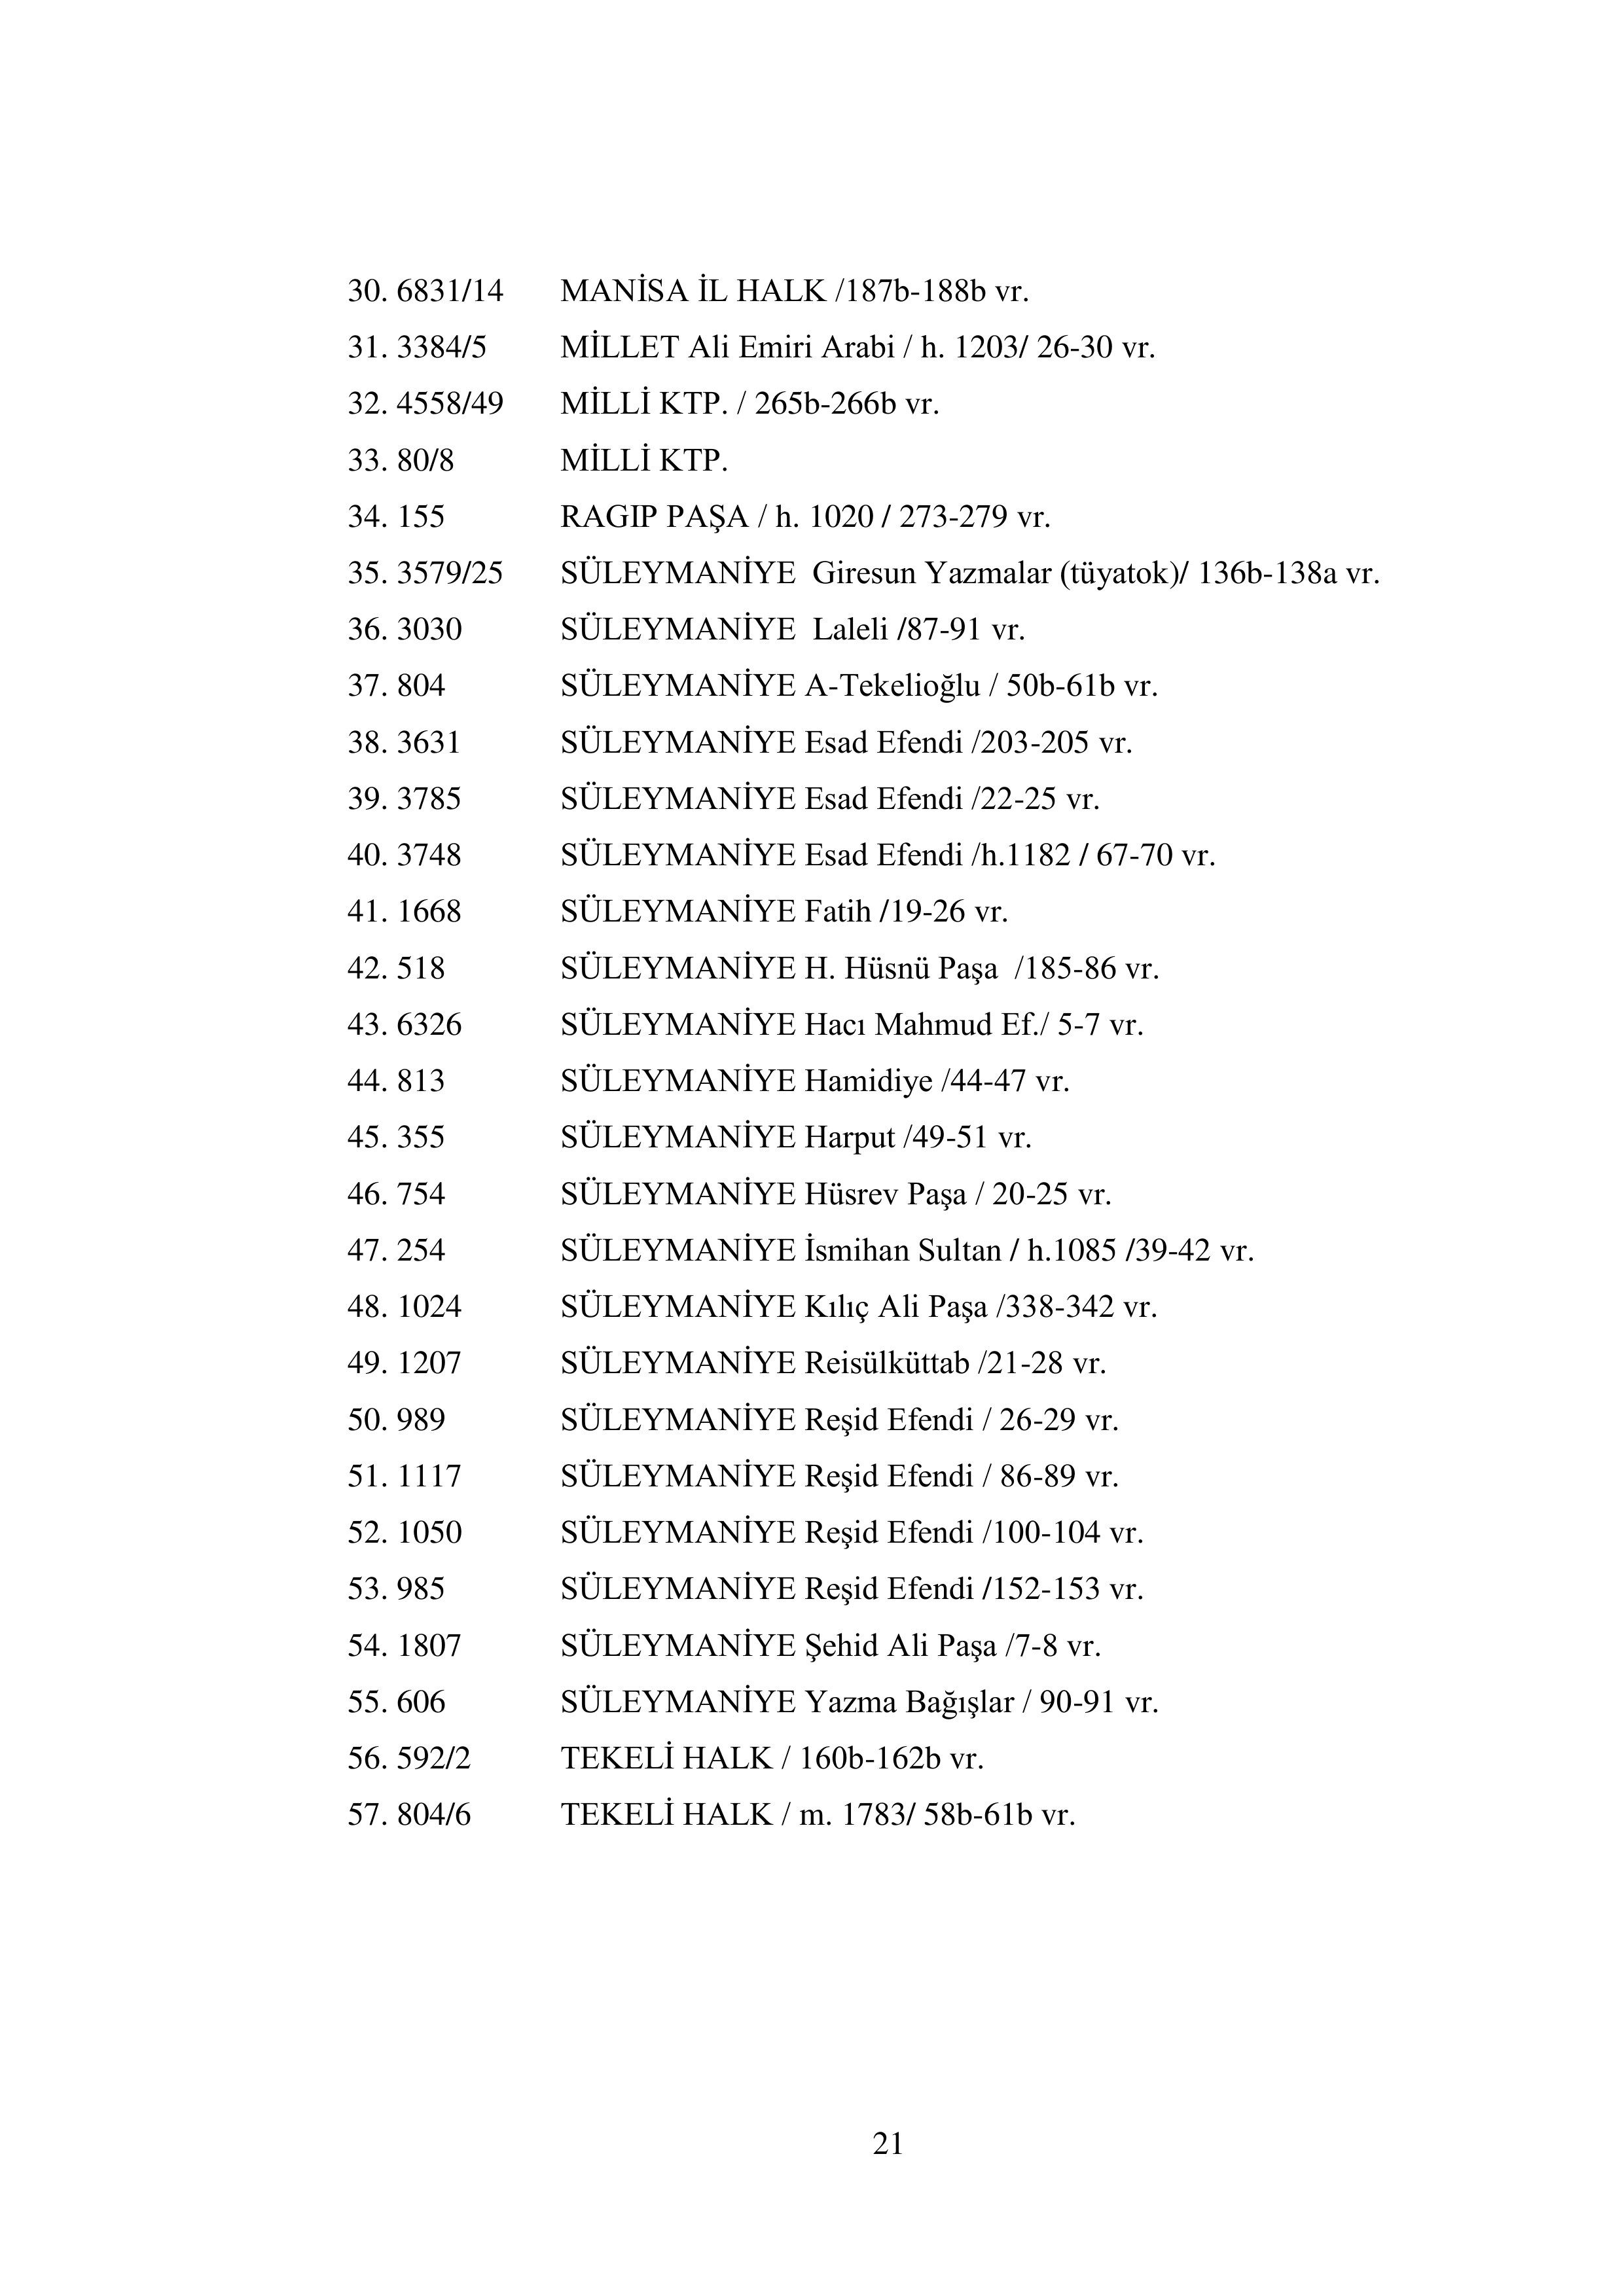 30. 6831/14 MANİSA İL HALK /187b-188b vr.
31. 3384/5 MİLLET Ali Emiri Arabi / h. 1203/ 26-30 vr.
32. 4558/49 MİLLİ KTP. / 265b-266b vr.
33. 80/8 MİLLİ KTP.
34. 155 RAGIP PAŞA / h. 1020 / 273-279 vr.
35. 3579/25 SÜLEYMANİYE  Giresun Yazmalar (tüyatok)/ 136b-138a vr.
36. 3030 SÜLEYMANİYE  Laleli /87-91 vr.
37. 804 SÜLEYMANİYE A-Tekelioğlu / 50b-61b vr.
38. 3631 SÜLEYMANİYE Esad Efendi /203-205 vr.
39. 3785 SÜLEYMANİYE Esad Efendi /22-25 vr.
40. 3748 SÜLEYMANİYE Esad Efendi /h.1182 / 67-70 vr.
41. 1668 SÜLEYMANİYE Fatih /19-26 vr.
42. 518 SÜLEYMANİYE H. Hüsnü Paşa  /185-86 vr.
43. 6326 SÜLEYMANİYE Hacı Mahmud Ef./ 5-7 vr.
44. 813 SÜLEYMANİYE Hamidiye /44-47 vr.
45. 355 SÜLEYMANİYE Harput /49-51 vr.
46. 754 SÜLEYMANİYE Hüsrev Paşa / 20-25 vr.
47. 254 SÜLEYMANİYE İsmihan Sultan / h.1085 /39-42 vr.
48. 1024 SÜLEYMANİYE Kılıç Ali Paşa /338-342 vr.
49. 1207 SÜLEYMANİYE Reisülküttab /21-28 vr.
50. 989 SÜLEYMANİYE Reşid Efendi / 26-29 vr.
51. 1117 SÜLEYMANİYE Reşid Efendi / 86-89 vr.
52. 1050 SÜLEYMANİYE Reşid Efendi /100-104 vr.
53. 985 SÜLEYMANİYE Reşid Efendi /152-153 vr.
54. 1807 SÜLEYMANİYE Şehid Ali Paşa /7-8 vr.
55. 606 SÜLEYMANİYE Yazma Bağışlar / 90-91 vr.
56. 592/2 TEKELİ HALK / 160b-162b vr.
57. 804/6 TEKELİ HALK / m. 1783/ 58b-61b vr.
21